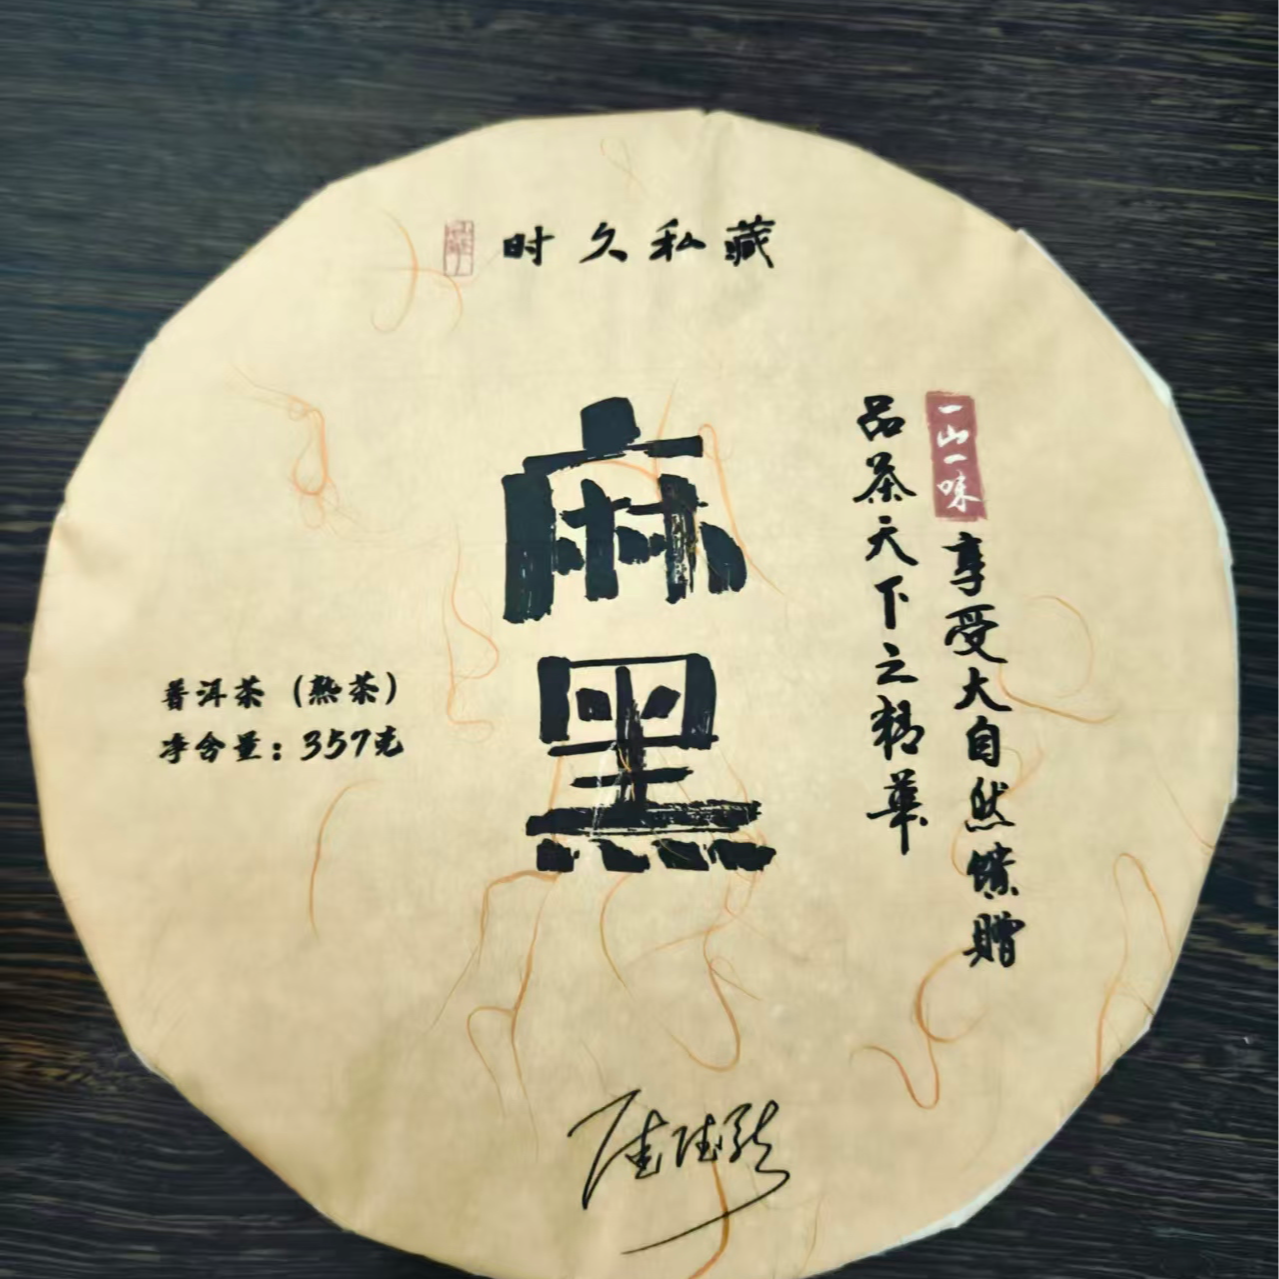 时久私藏
麻黑
一山一味
享受大自然馈赠
品茶天下之精华
普洱茶（熟茶）
净含量：357克